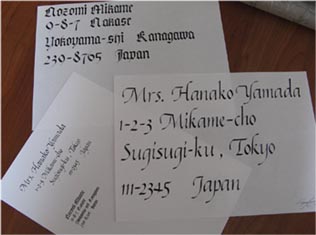 Nozomi Mikame
0-8-7 Nakase
Yokoyama-shi Kanagawa
239-8765 Japan
Mrs. Hanako Yamada
1-2-3 Mikame-cho
Sugisugi-ku, Tokyo
111-2345 Japan
Mrs. Hanako Yamada
1-2-3 Mikame-cho
Sugisugi-ku, Tokyo
111-2345 Japan